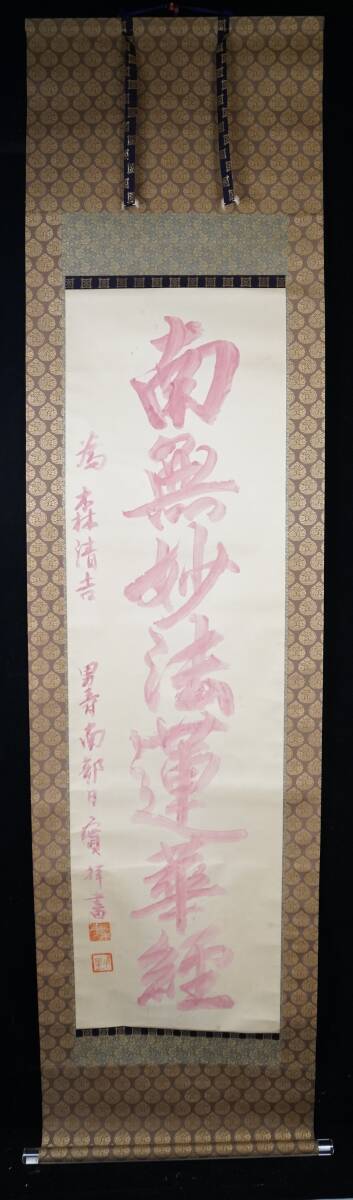 南無妙法蓮華經
為 森清吉
男爵南部日實拝書